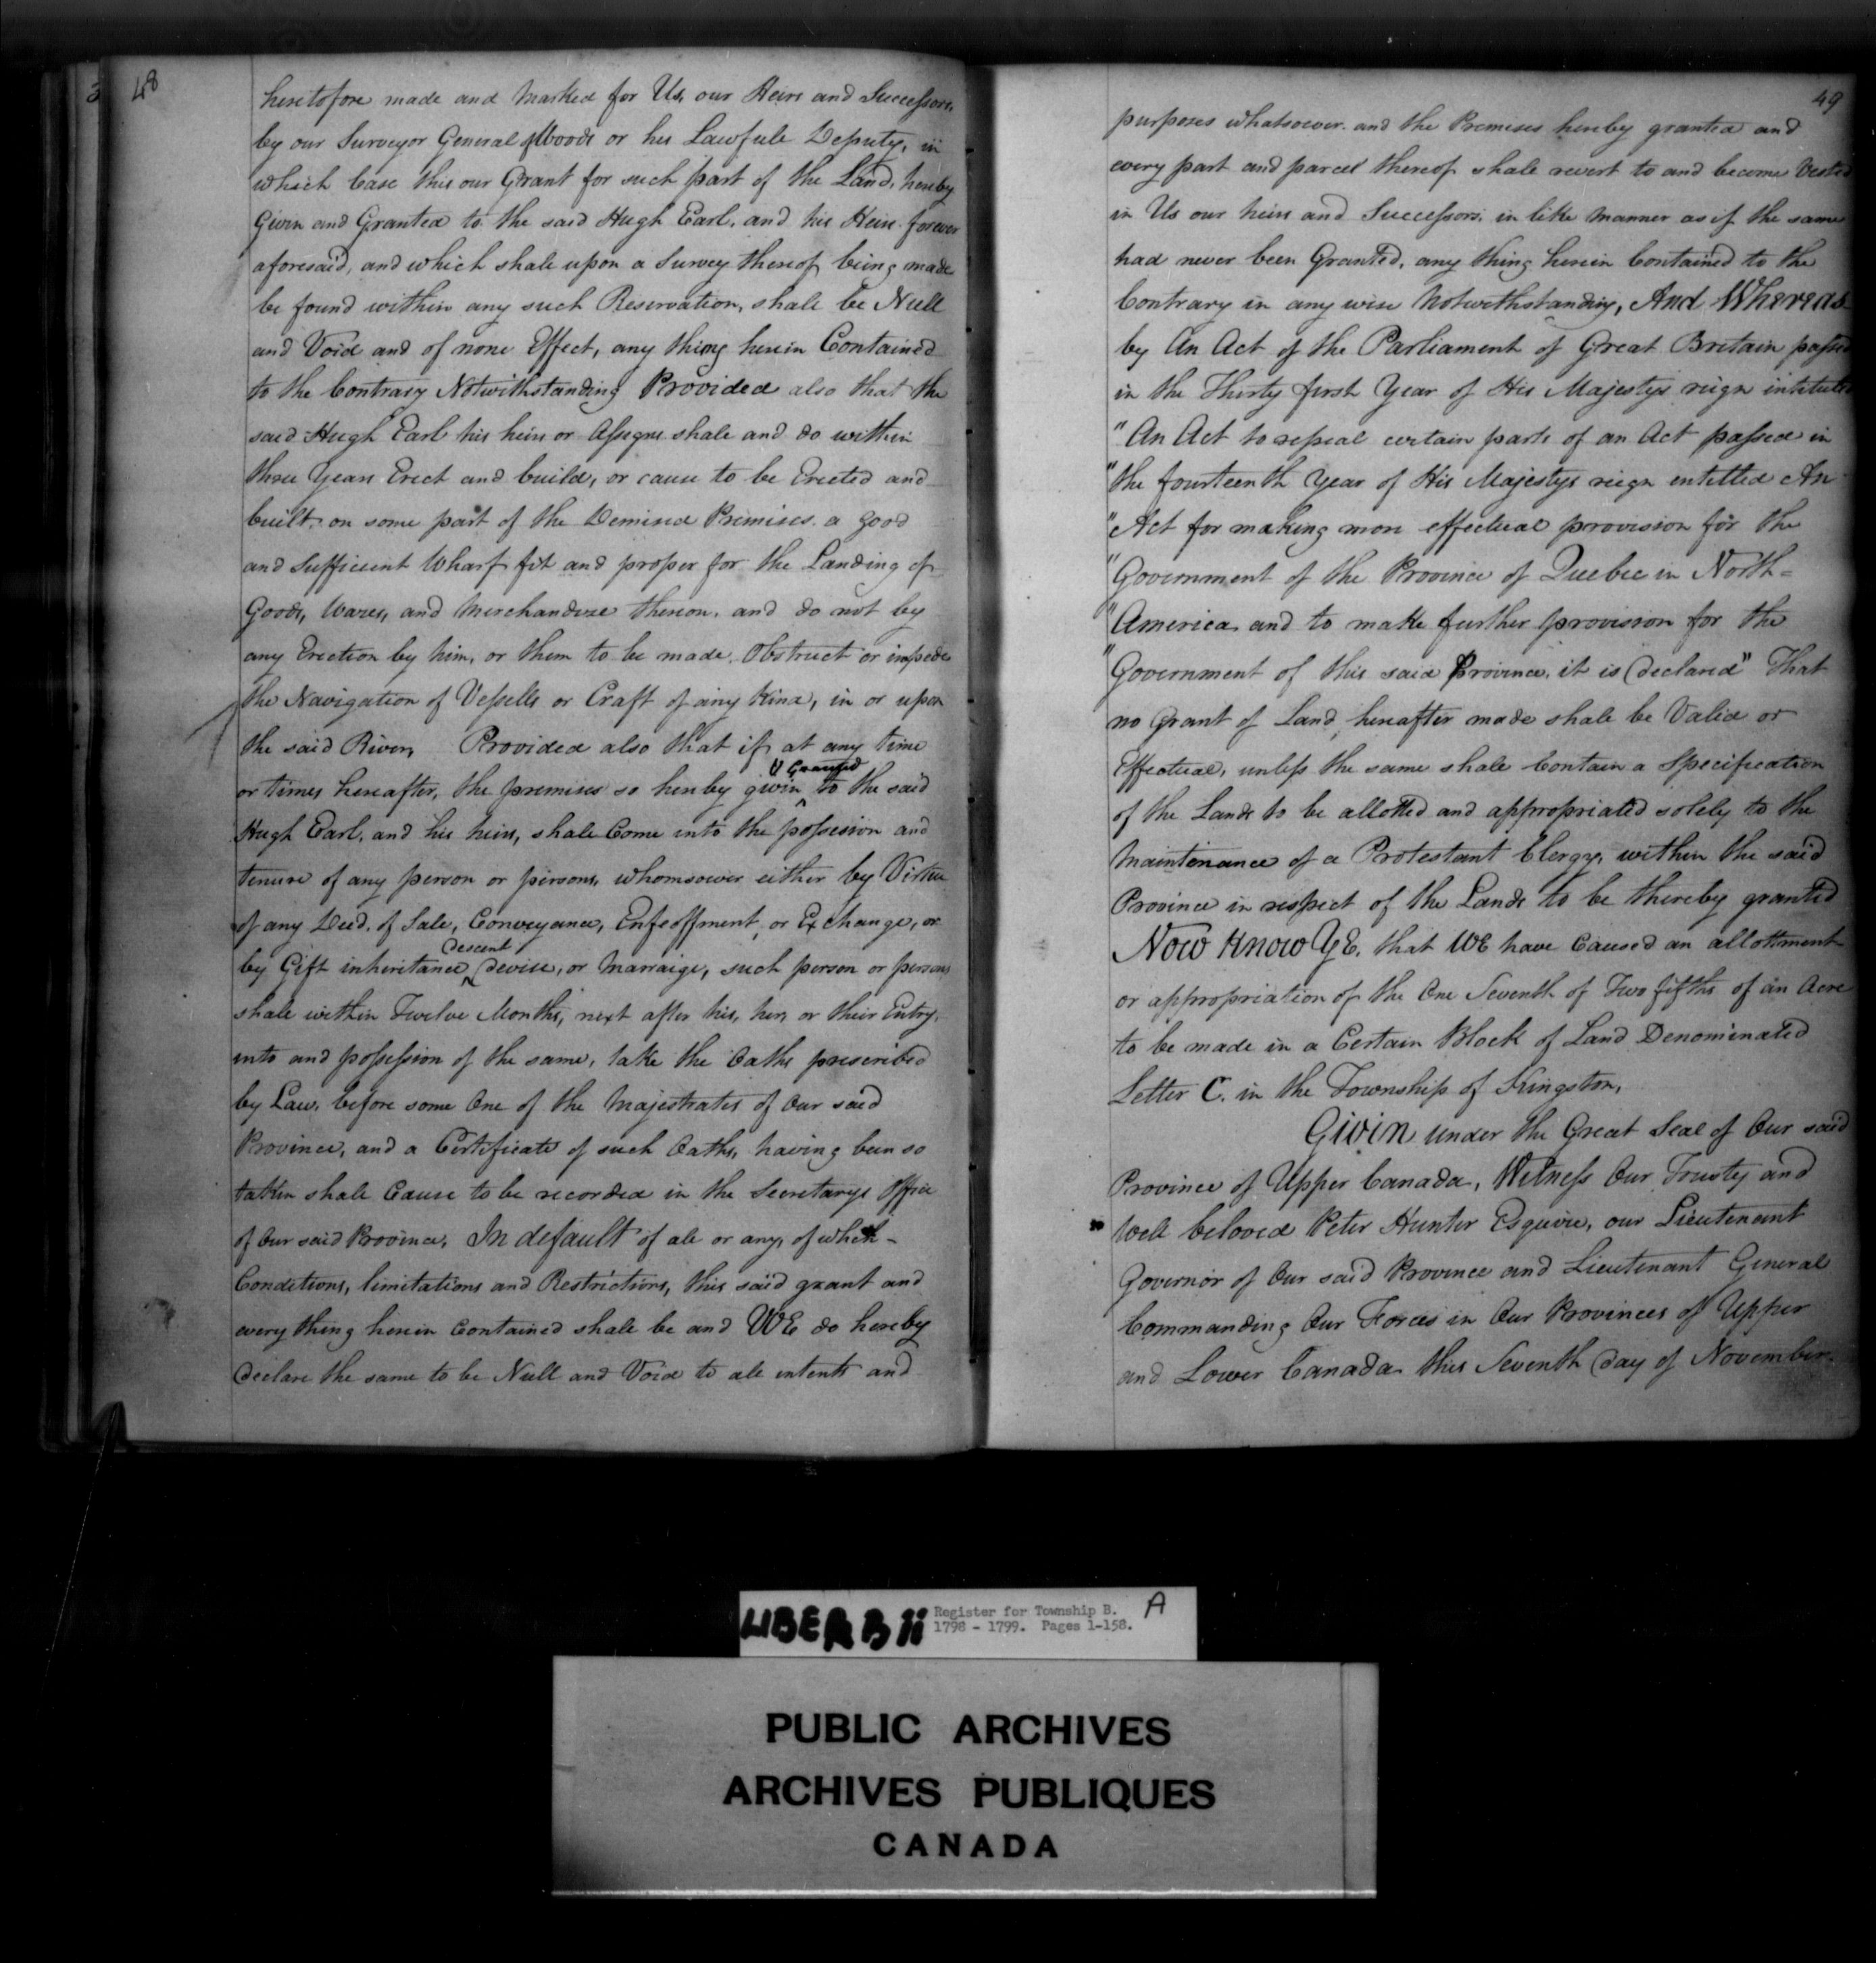 48
heretofore made and Marked for Us, our Heirs and Successors,
by our Surveyor General of Woods or his Lawfull Deputy, in
which Case this our Grant for such part of the Land, hereby
Given and Granted to the said Hugh Earl, and his Heirs forever
aforesaid, and which shall upon a Survey thereof being made
be found within any such Reservation, shall be Null
and Void and of none Effect, any thing herein Contained
to the Contrary Notwithstanding Provided also that the
said Hugh Earl his heirs or Assigns shall and do within
three Years Erect and build, or cause to be Erected and
built, on some part of the Demised Premises a good
and Sufficient Wharf fit and proper for the Landing of
Goods, Wares, and Merchandize thereon, and do not by
any Erection by him, or them to be made, Obstruct or impede
the Navigation of Vessells or Craft of any Kind, in or upon
the said River, Provided also that if at any time
or times hereafter, the premises so hereby given & Granted to the said
Hugh Earl, and his heirs, shall Come into the possession and
tenure of any person or persons, whomsoever either by Virtue
of any Deed of Sale, Conveyance, Enfeoffment, or Exchange, or
by Gift inheritance, descent devise, or Marraige, such person or persons
shall within Twelve Months, next after his, her, or their Entry,
into and possession of the same, take the Oaths prescribed
by Law, before some One of the Majestrates of Our said
Province, and a Certificate of such Oaths, having been so
taken shall Cause to be recorded in the Secretarys Office
of Our said Province, In default of all or any, of which -
Conditions, limitations and Restrictions, this said grant and
every thing herein Contained shall be and WE do hereby
declare the same to be Null and Void to all intents and
49
purposes whatsoever. and the Premises hereby granted and
every part and parcel thereof shall revert to and become Vested
in Us our heirs and Successors, in like Manner as if the same
had never been Granted, any thing herein Contained to the
Contrary in any wise Notwithstanding, And Whereas
by An Act of the Parliament of Great Britain passed
in the Thirty first Year of His Majestys reign intituled
"An Act to repeal certain parts of an Act passed in
"the fourteenth Year of His Majestys reign entitled An
"Act for making more effectual provision for the
"Government of the Province of Quebec in North=
"America and to make further provision for the
"Government of this said Province, it is declared" That
no Grant of Land hereafter made shall be Valid or
Effectual, unless the same shall Contain a Specification
of the Lands to be allotted and appropriated solely to the
Maintenance of a Protestant Clergy, within the said
Province in respect of the Lands to be thereby granted
Now Know YE, that WE have Caused an allottment
or appropriation of the One Seventh of Two fifths of an Acre
to be made in a Certain Block of Land Denominated
Letter C. in the Township of Kingston,
Given under the Great Seal of Our said
Province of Upper Canada, Witness Our Trusty and
Well beloved Peter Hunter Esquire, our Lieutenant
Governor of Our said Province and Lieutenant General
Commanding Our Forces in Our Provinces of Upper
and Lower Canada this Seventh day of November
LIBER B ii
Register for Township B.
1798 - 1799. Pages 1-158.
A
PUBLIC ARCHIVES
ARCHIVES PUBLIQUES
CANADA